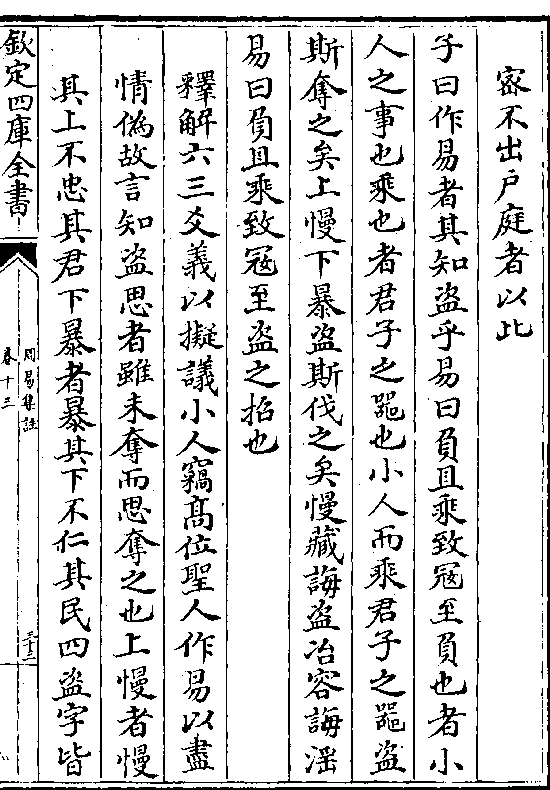 宻不出戶庭者以此
子曰作易者其知盗乎易曰負且乘致冦至負也者小
人之事也乘也者君子之噐也小人而乘君子之噐盗
斯奪之矣上慢下暴盗斯伐之矣慢藏誨盗冶容誨滛
易曰負且乘致冦至盗之招也
釋解六三爻義以擬議小人竊髙位聖人作易以盡
情偽故言知盗思者雖未奪而思奪之也上慢者慢
其上不忠其君下暴者暴其下不仁其民四盗字皆
欽定四庫全書
周易集註
卷十三
三十二